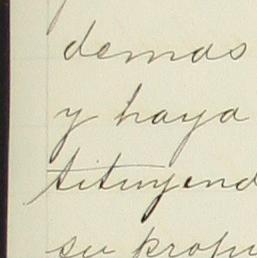 demas
y haya
tituyend
su propi